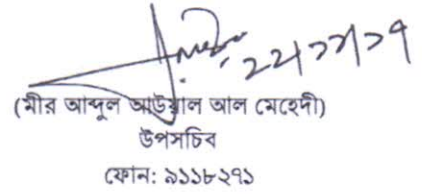 ২২/১১/১৭
(মীর আব্দুল আউয়াল আল মেহেদী)
উপসচিব
ফোন: ৯১১৮২৭১